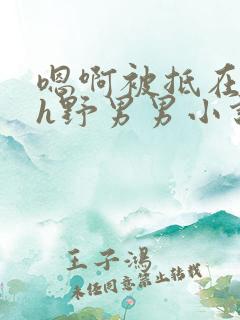 嗯啊被抵在
h野男男小
王子鸿
未经同意禁止转载